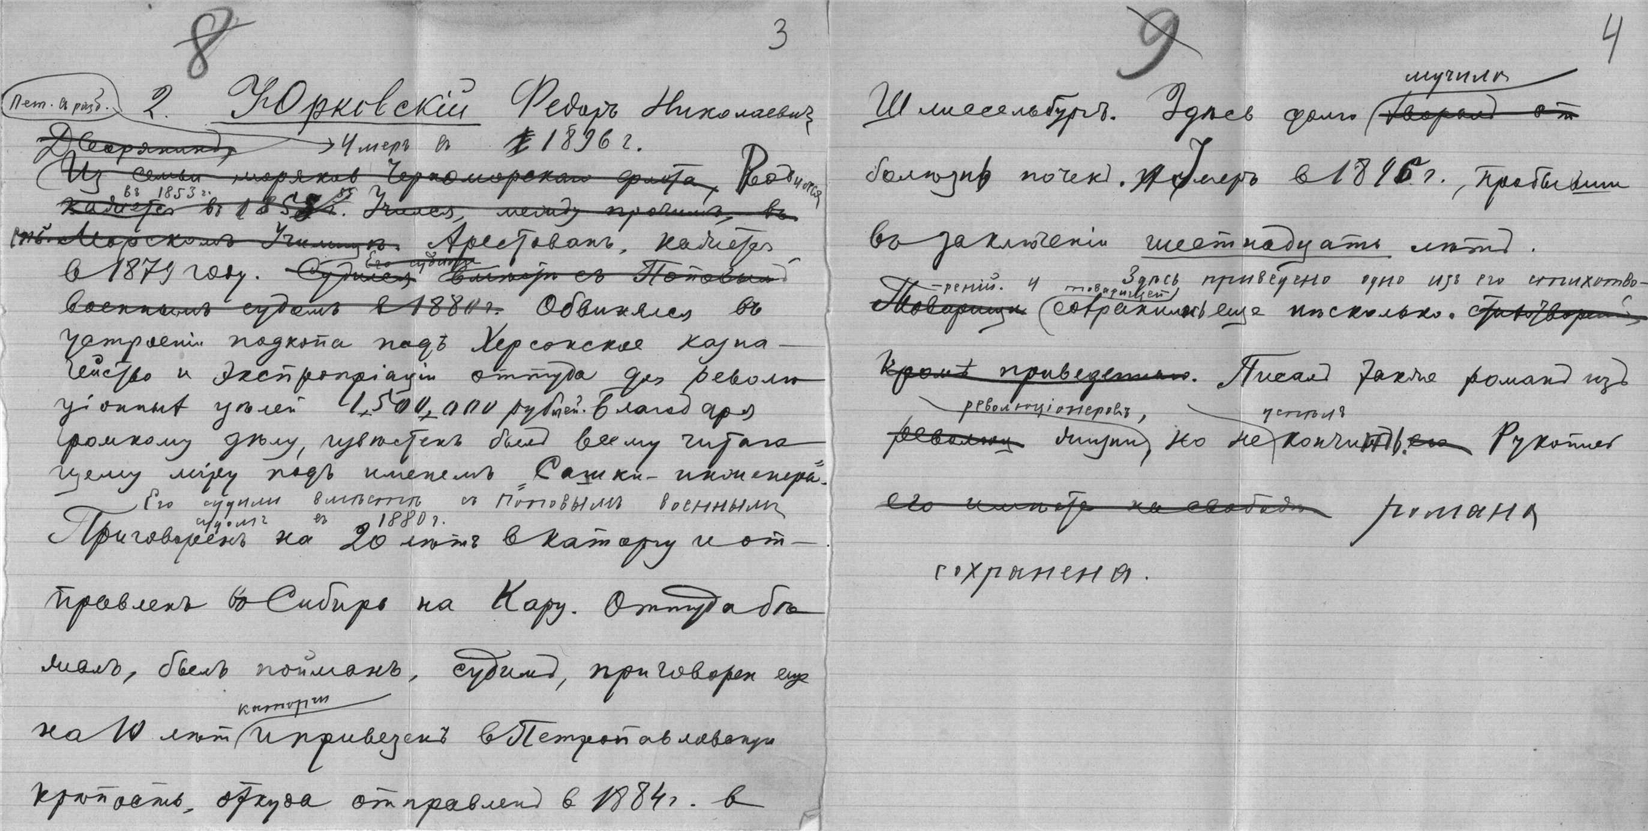 8
3
Пет. Образ.
2. Юрковскій Федоръ Николаевич
Дворянинъ, Умеръ въ 1896 г.
Из семьи моряков Черноморскаго флота, Родился
въ 1853 г.
въ 1853 г. Учился, между прочимъ, въ
Морскомъ Училищѣ. Арестованъ,
в 1879 году. Судился вмѣстѣ съ Поповымъ
военнымъ судомъ в 1880 г. Обвинялся въ
устроеніи подкопа подъ Херсонское казна-
чейство и экспропріаціи оттуда для револю
ціонныхъ цѣлей 1,500,000 рублей. Благодаря
громкому дѣлу, извѣстенъ былъ всему читаю
щему міру подъ именемъ „Сашки-инженера".
Его судили вмѣстѣ съ Поповымъ военнымъ
судомъ въ 1880 г.
Приговоренъ на 20 лѣтъ в каторгу и от-
правленъ въ Сибирь на Кару. Оттуда бѣ
жалъ, былъ пойманъ, судимъ, приговорен еще
каторги
на 10 лѣт и привезенъ в Петропавловскую
крѣпость, откуда отправленъ в 1884 г. в
9
4
мучила
Шлиссельбургъ. Здѣсь долго хворалъ от
болѣзнь почекъ. Умеръ в 1896 г., пробывши
въ заключеніи шестнадцать лѣтъ.
Здѣсь приведено одно изъ его стихотво-
реній. и товарищей
Товарищи сохранились еще нѣсколько. стихотвореній,
кромѣ приведеннаго. Писалъ также романъ изъ
революціонеровъ, успѣлъ
революц жизни, но не кончить. его Рукопись
его имѣется на свободѣ романа
сохранена.